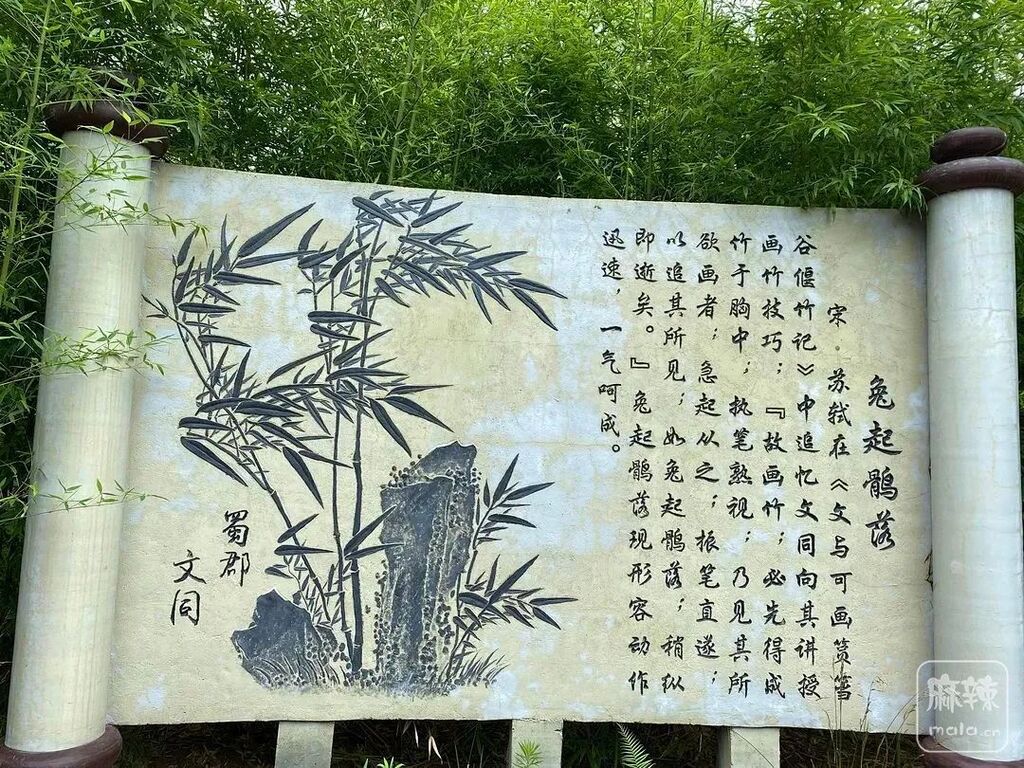 兔起鹘落
宋·苏轼在《文与可画筼筜
谷偃竹记》中追忆文同向其讲授
画竹技巧；『故画竹；必先得成
竹于胸中；执笔熟视；乃见其所
欲画者；急起从之；振笔直遂；
以追其所见；如兔起鹘落；稍纵
即逝矣。』兔起鹘落现形容动作
迅速，一气呵成。
蜀郡
文同
麻辣
mala.cn